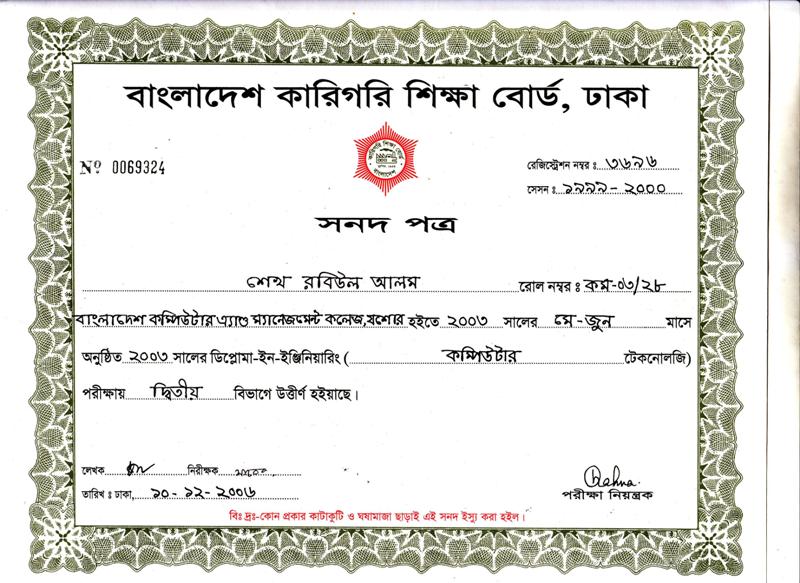 বাংলাদেশ কারিগরি শিক্ষা বোর্ড, ঢাকা
Nº 0069324
রেজিস্ট্রেশন নম্বর ঃ ৩৬৯৬
সেসন ঃ ১৯৯৯-২০০০
সনদ পত্র
শেখ রবিউল আলম রোল নম্বর ঃ কম-০৩/২৮
বাংলাদেশ কম্পিউটার এ্যাণ্ড ম্যানেজমেন্ট কলেজ, যশোর হইতে ২০০৩ সালের মে-জুন মাসে
অনুষ্ঠিত ২০০৩ সালের ডিপ্লোমা-ইন-ইঞ্জিনিয়ারিং ( কম্পিউটার টেকনোলজি)
পরীক্ষায় দ্বিতীয় বিভাগে উত্তীর্ণ হইয়াছে।
লেখক নিরীক্ষক
তারিখ ঃ ঢাকা, ১০-১২-২০০৬
পরীক্ষা নিয়ন্ত্রক
বিঃ দ্রঃ-কোন প্রকার কাটাকুটি ও ঘষামাজা ছাড়াই এই সনদ ইস্যু করা হইল।